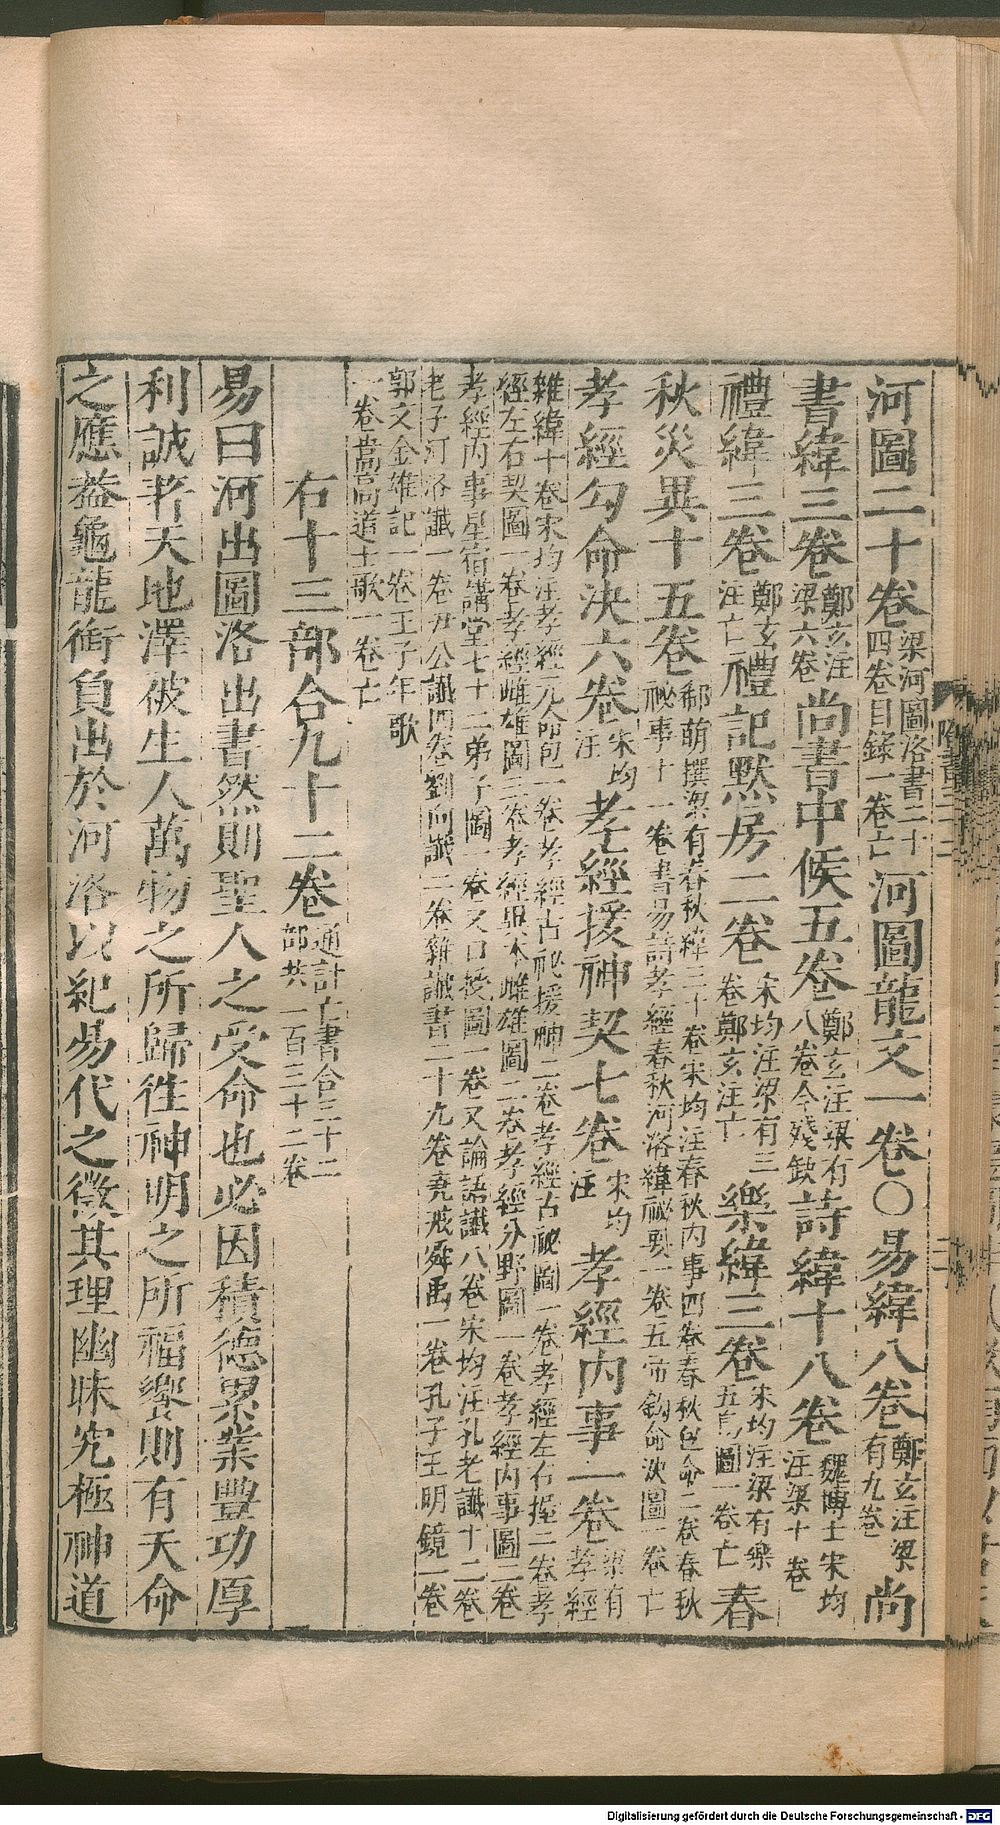 河圖二十卷梁河圖洛書二十四卷目錄一卷亡河圖龍文一卷〇易緯八卷鄭玄注梁有九卷尚
書緯三卷鄭玄注梁六卷尚書中候五卷鄭玄注梁有八卷今殘缺詩緯十八卷魏博士宋均注梁十卷
禮緯三卷鄭玄注亡禮記默房二卷宋均注梁有三卷鄭玄注亡樂緯三卷宋均注梁有樂五鳥圖一卷亡春
秋災異十五卷郗萌撰梁有春秋緯三十卷宋均注春秋內事四卷春秋包命二卷春秋祕事十一卷書易詩孝經春秋河洛緯祕要一卷五帝鉤命決圖一卷亡
孝經勾命決六卷宋均注孝經援神契七卷宋均注孝經內事一卷梁有孝經
雜緯十卷宋均注孝經元命包一卷孝經古祕援神二卷孝經古祕圖一卷孝經左右握二卷孝
經左右契圖一卷孝經雌雄圖三卷孝經異本雌雄圖二卷孝經分野圖一卷孝經內事圖二卷
孝經內事星宿講堂七十二弟子圖一卷又口授圖一卷又論語讖八卷宋均注孔老讖十二卷
老子河洛讖一卷尹公讖四卷劉向讖二卷雜讖書二十九卷堯戒舜禹一卷孔子王明鏡一卷
郭文金雄記一卷王子年歌
一卷嵩高道士歌一卷亡
右十三部合九十二卷通計亡書合三十二部共一百三十二卷
易曰河出圖洛出書然則聖人之受命也必因積德累業豐功厚
利誠著天地澤被生人萬物之所歸往神明之所福饗則有天命
之應蓋龜龍銜負出於河洛以紀易代之徵其理幽昧究極神道
Digitalisierung gefördert durch die Deutsche Forschungsgemeinschaft - DFG